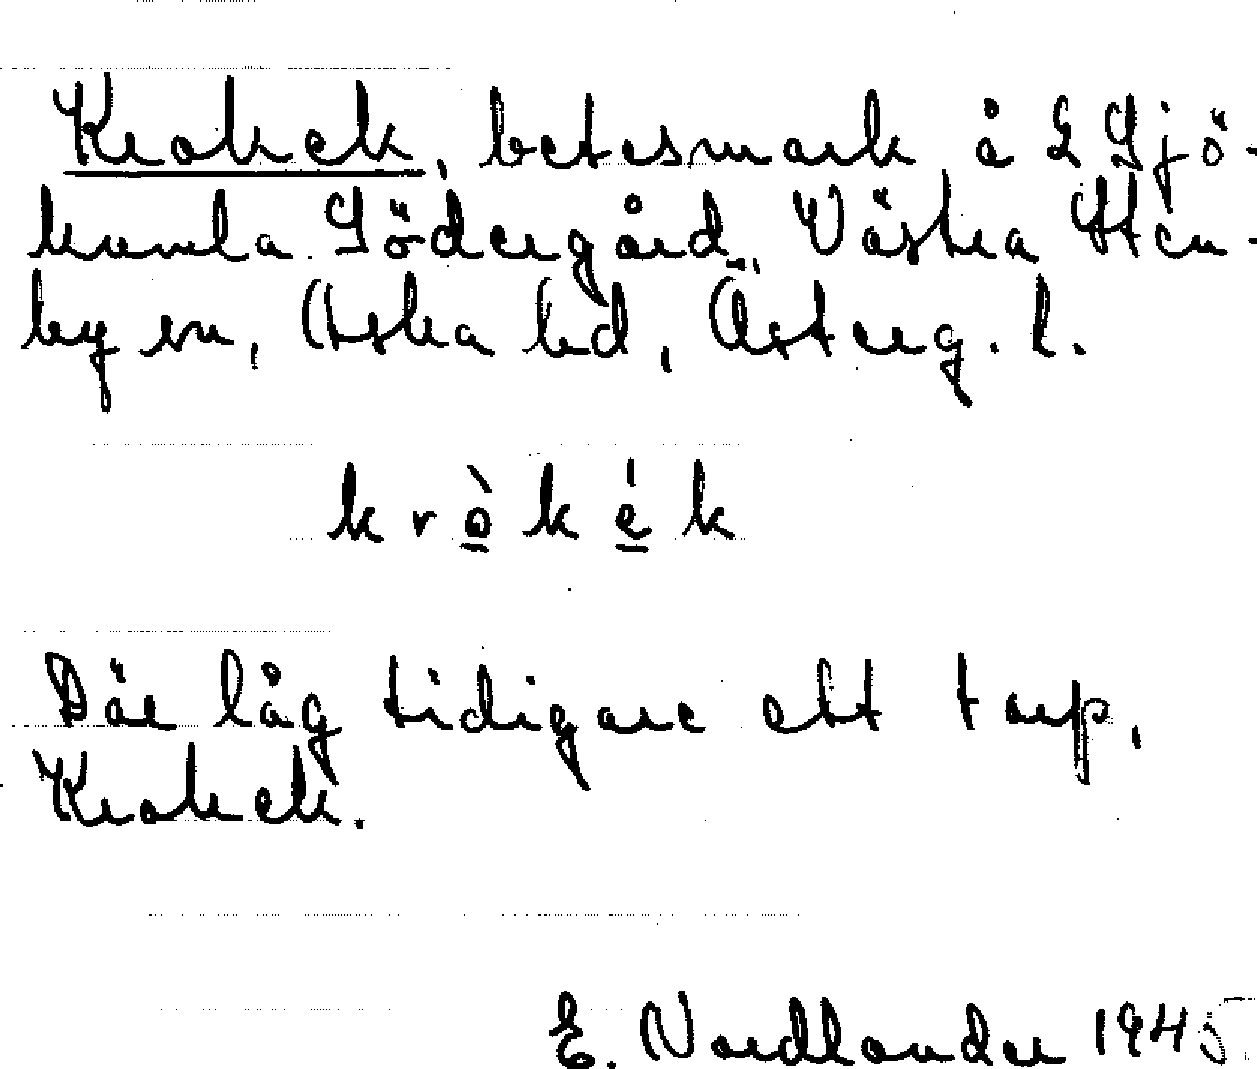 Krokek, betesmark å L Sjö-
kumla Södergård, Västra Sten-
by sn, Aska hd, Österg. l.
k r ò̱ k é̱ k
Där låg tidigare ett torp,
Krokek.
E. Nordlander 1945